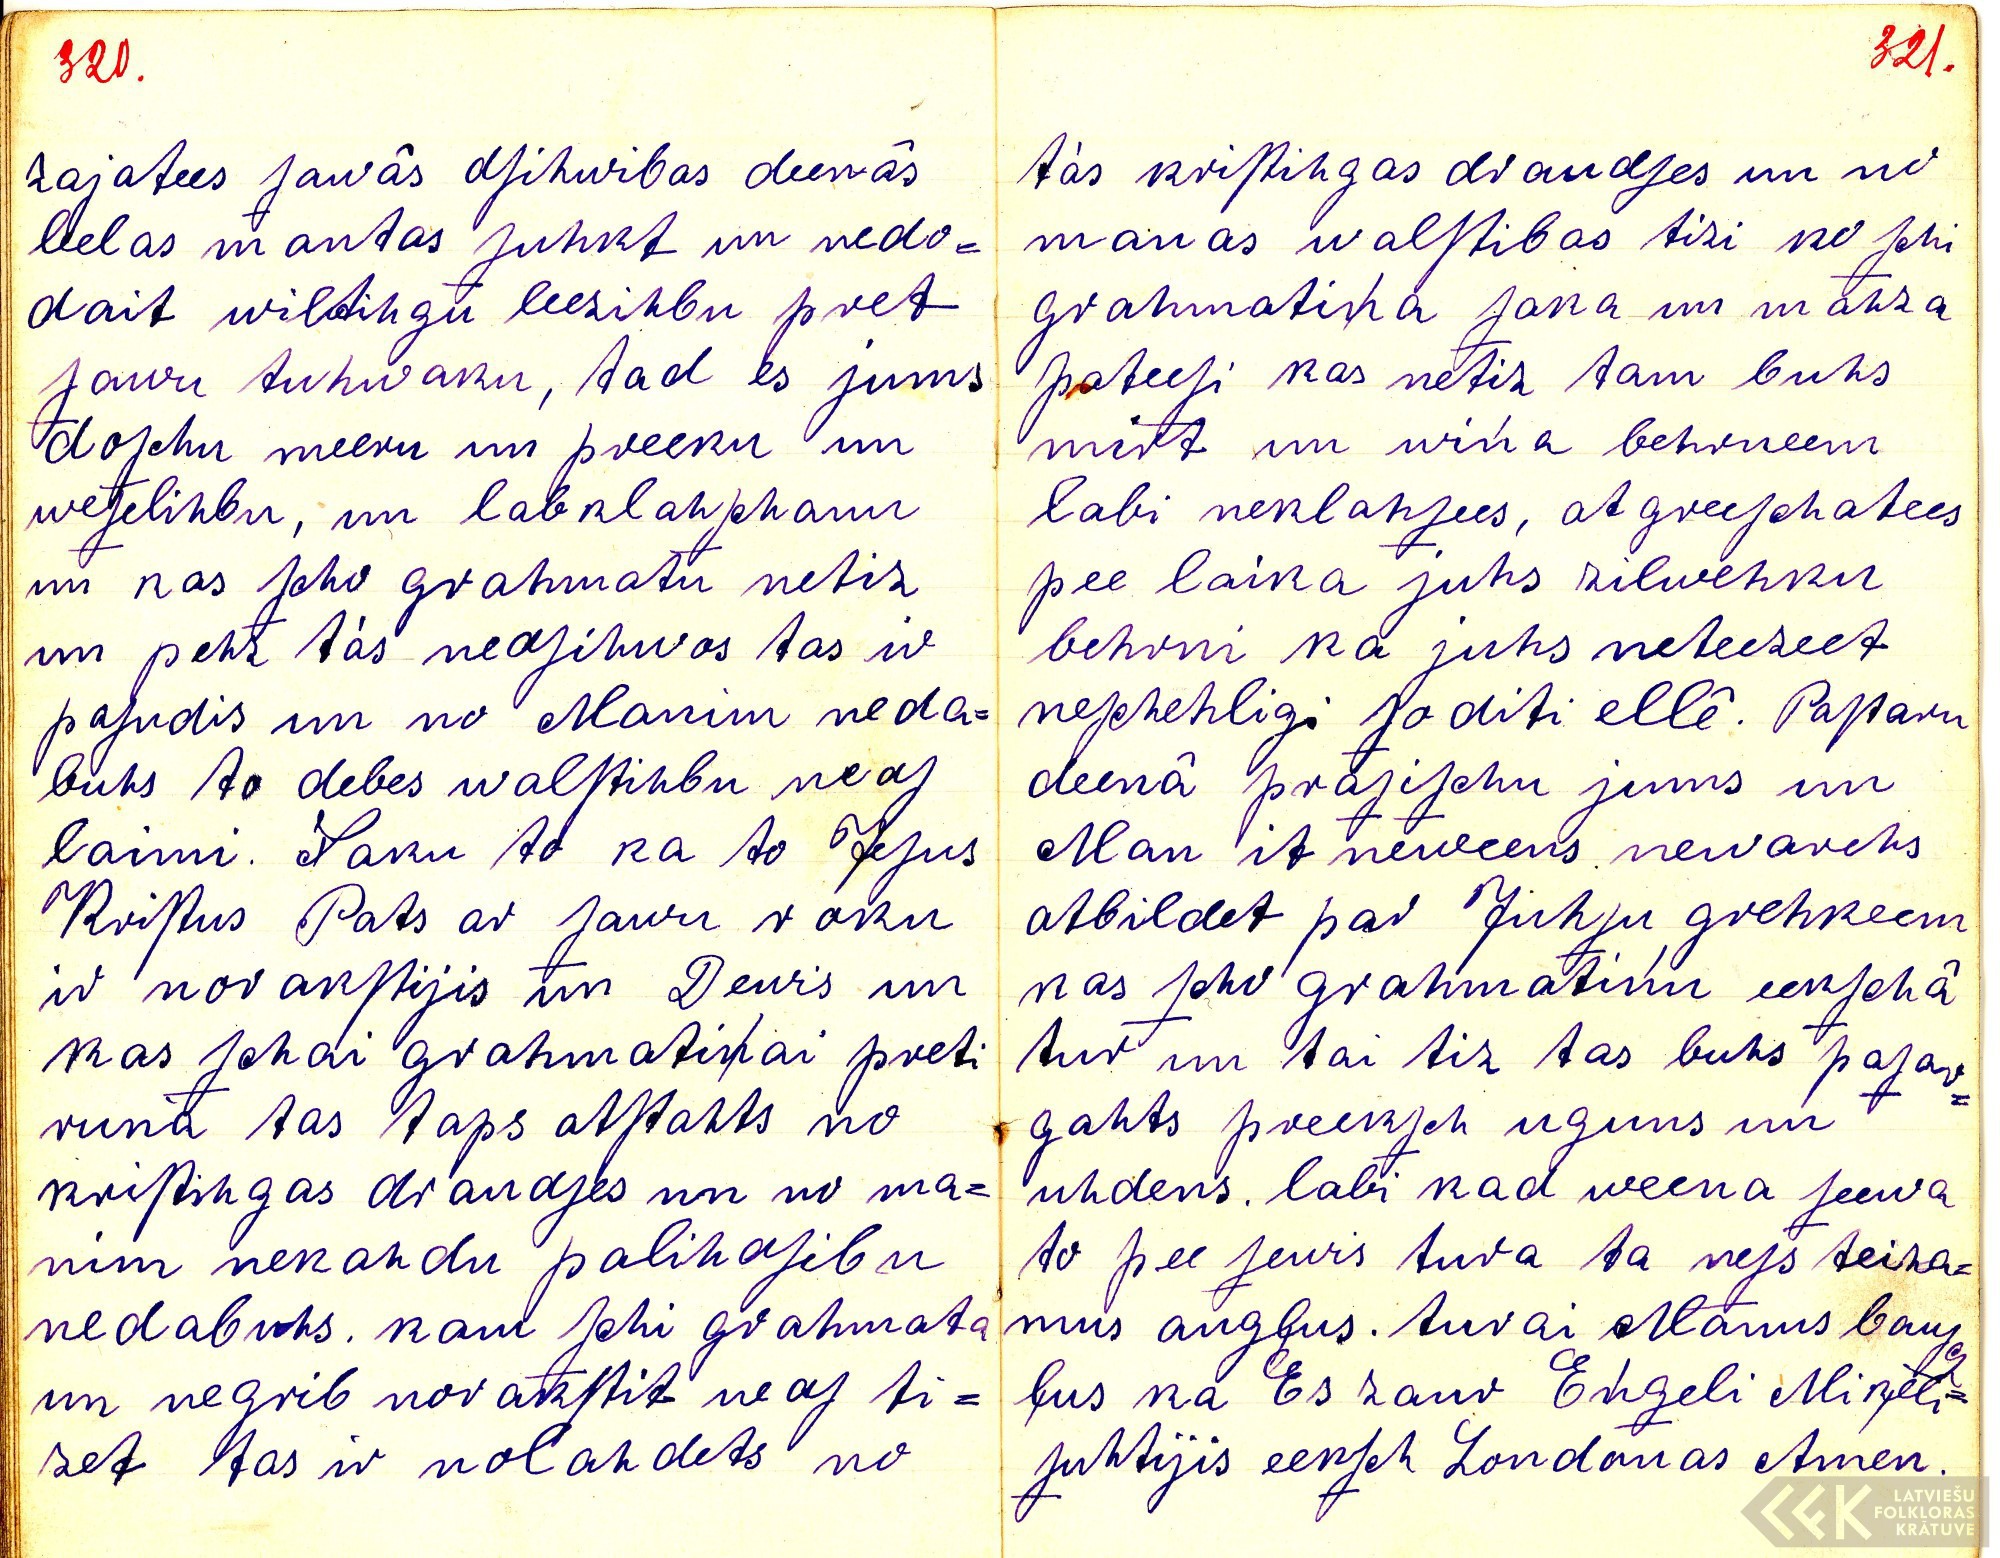 320.
zajatees ſawâs dſihwibas deenâs
leelas mantas ſuhkt un nedo=
dait wiltihgu leezihbu pret
ſawu tuhwaku, tad es jums
doſchu meeru un preeku un
weſelihbu, un labklahſchanu
un kas ſcho grahmatu netiz
un pehz tàs nedſihwos tas ir
paſudis un no Manim neda=
buhs to debes walſtihbu nedſ
laimi. Saku to ka to Jeſus
Kriſtus Pats ar ſawu roku
ir norakſtijis un Dewis un
kas ſchai grahmatiņai preti
runà tas taps atſtahts no
kriſtihgas draudſes un no ma=
nim nekahdu palihdſibu
nedabuhs. kam ſchi grahmata
un negrib norakſtit nedſ ti=
zet tas ir nolahdets no
321.
tàs kriſtihgas draudſes un no
manas walſtibas tizi ko ſchi
grahmatiņa ſaka un mahza
pateeſi kas netiz tam buhs
mirt un wiņa behrneem
labi neklahſees, atgreeſchatees
pee laika juhs zilwehku
behrni ka juhs neteezeet
neſchehligi ſoditi ellê. Paſtaru
deenâ praſiſchu jums un
Man it neweens newarehs
atbildet par Juhſu grehkeem
kas ſcho grahmatiņu eekſchâ
tur un tai tiz tas buhs paſar=
gahts preekſch uguns un
uhdens. labi kad weena ſeewa
to pee ſewis tura ta neſs teiza=
mus augļus. turai Manus bauſ
ļus ka Es zaur Eņgeli Miķeli=
ſuhtijis eekſch Londonas Amen.
LATVIEŠU
FOLKLORAS
KRĀTUVE